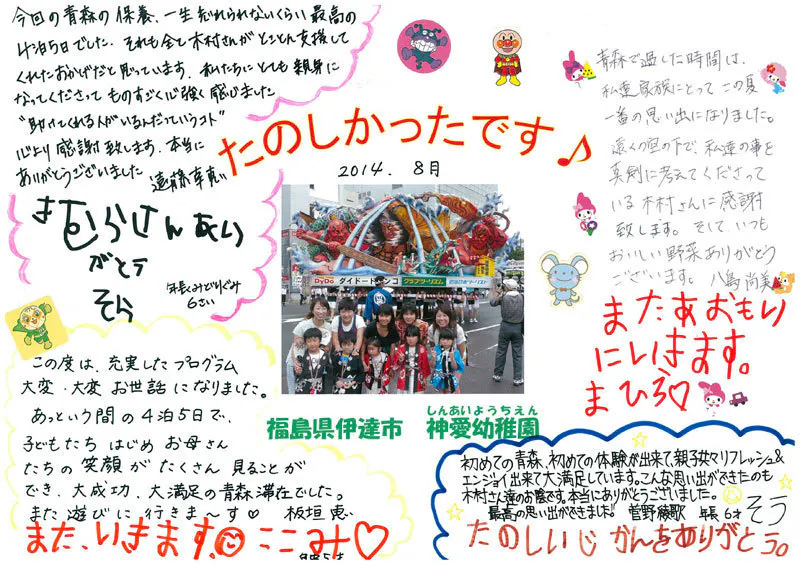 今回の青森の保養、一生忘れられないくらい最高の
4泊5日でした。それも全て木村さんがとことん支援して
くれたおかげだと思っています。私たちにとても親身に
なってくださってものすごく心強く感じました
"助けてくれる人がいるんだっていうコト"
心より感謝致します。本当に
ありがとうございました 遠藤
きむらさんあり
がとう
そら
年長みどりぐみ
6さい
たのしかったです♪
2014. 8月
青森で過した時間は、
私達家族にとってこの夏
一番の思い出になりました。
遠くの空の下で、私達の事を
真剣に考えてくださって
いる木村さんに感謝
致します。そして、いつも
おいしい野菜ありがとう
ございます。八島 尚美
またあおもり
にいきます。
まひろ♡
DyDo ダイドードリンコ クラブツーリズム
この度は、充実したプログラム
大変・大変お世話になりました。
あっという間の4泊5日で、
子どもたちはじめお母さん
たちの笑顔がたくさん見ることが
でき、大成功、大満足の青森滞在でした。
また遊びに行きま〜す♡ 板垣 恵
また、いきます。ここみ♡
福島県伊達市 神愛幼稚園
しんあいようちえん
初めての青森、初めての体験が出来て、親子共々リフレッシュ&
エンジョイ出来て大満足しています。こんな思い出ができたのも
木村さん達のお陰です。本当にありがとうございました。
最高の思い出ができました! 菅野綾歌 年長 6才 そう
たのしいじかんをありがとう。